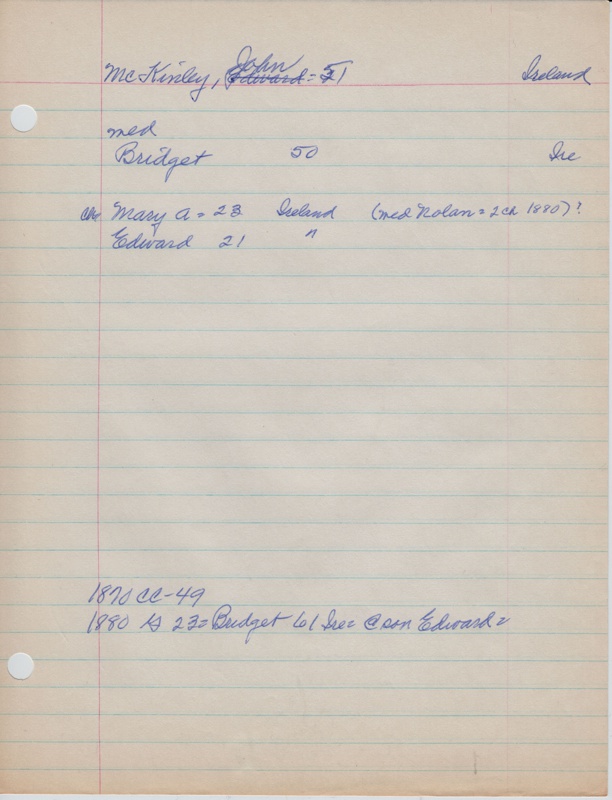 McKinley, John = 51 Ireland
Edward
med
Bridget 50 Ire
ch Mary A = 23 Ireland (med Nolan = 2ch 1880)?
Edward 21 "
1870 CC-49
1880 23 = Bridget 61 Ire = @ son Edward =